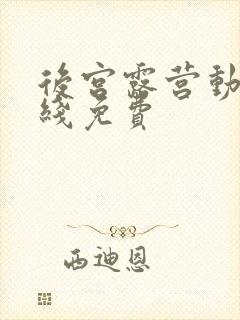 後宮露营動
綫免費
西迪恩